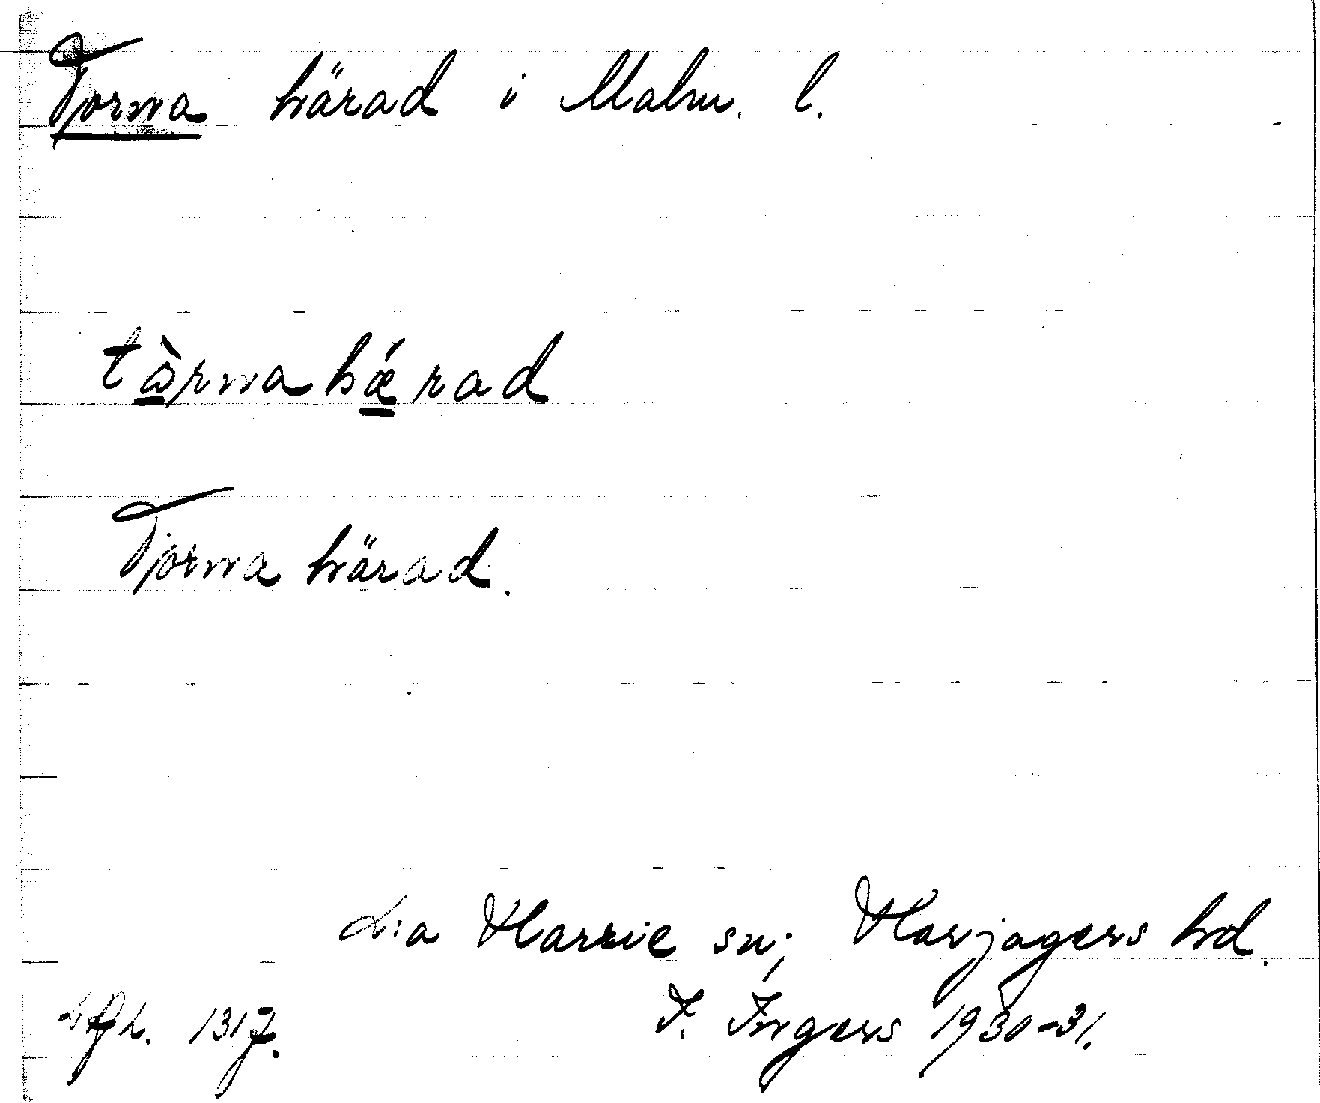 Torna härad i Malm. l.
tɔ̀rna hǽrad
Torna härad.
Lia Harrie sn; Harjagers hd.
1317. I. Ingers 1930-31.